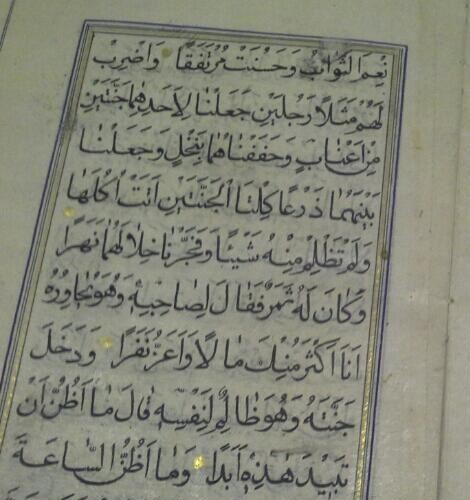 نِعْمَ الثَّوَابُ وَحَسُنَتْ مُرْتَفَقًا وَاضْرِبْ
لَهُمْ مَثَلًا رَجُلَيْنِ جَعَلْنَا لِأَحَدِهِمَا جَنَّتَيْنِ
مِنْ أَعْنَابٍ وَحَفَفْنَاهُمَا بِنَخْلٍ وَجَعَلْنَا
بَيْنَهُمَا زَرْعًا كِلْتَا الْجَنَّتَيْنِ آتَتْ أُكُلَهَا
وَلَمْ تَظْلِمْ مِنْهُ شَيْئًا وَفَجَّرْنَا خِلَالَهُمَا نَهَرًا
وَكَانَ لَهُ ثَمَرٌ فَقَالَ لِصَاحِبِهِ وَهُوَ يُحَاوِرُهُ
أَنَا أَكْثَرُ مِنْكَ مَالًا وَأَعَزُّ نَفَرًا وَدَخَلَ
جَنَّتَهُ وَهُوَ ظَالِمٌ لِنَفْسِهِ قَالَ مَا أَظُنُّ أَنْ
تَبِيدَ هَذِهِ أَبَدًا وَمَا أَظُنُّ السَّاعَةَ